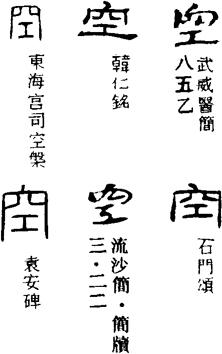 空
武威醫簡
八五乙
空
韓仁銘
空
東海宮司空槃
空
石門頌
空
流沙簡·簡牘
三·二二
空
袁安碑